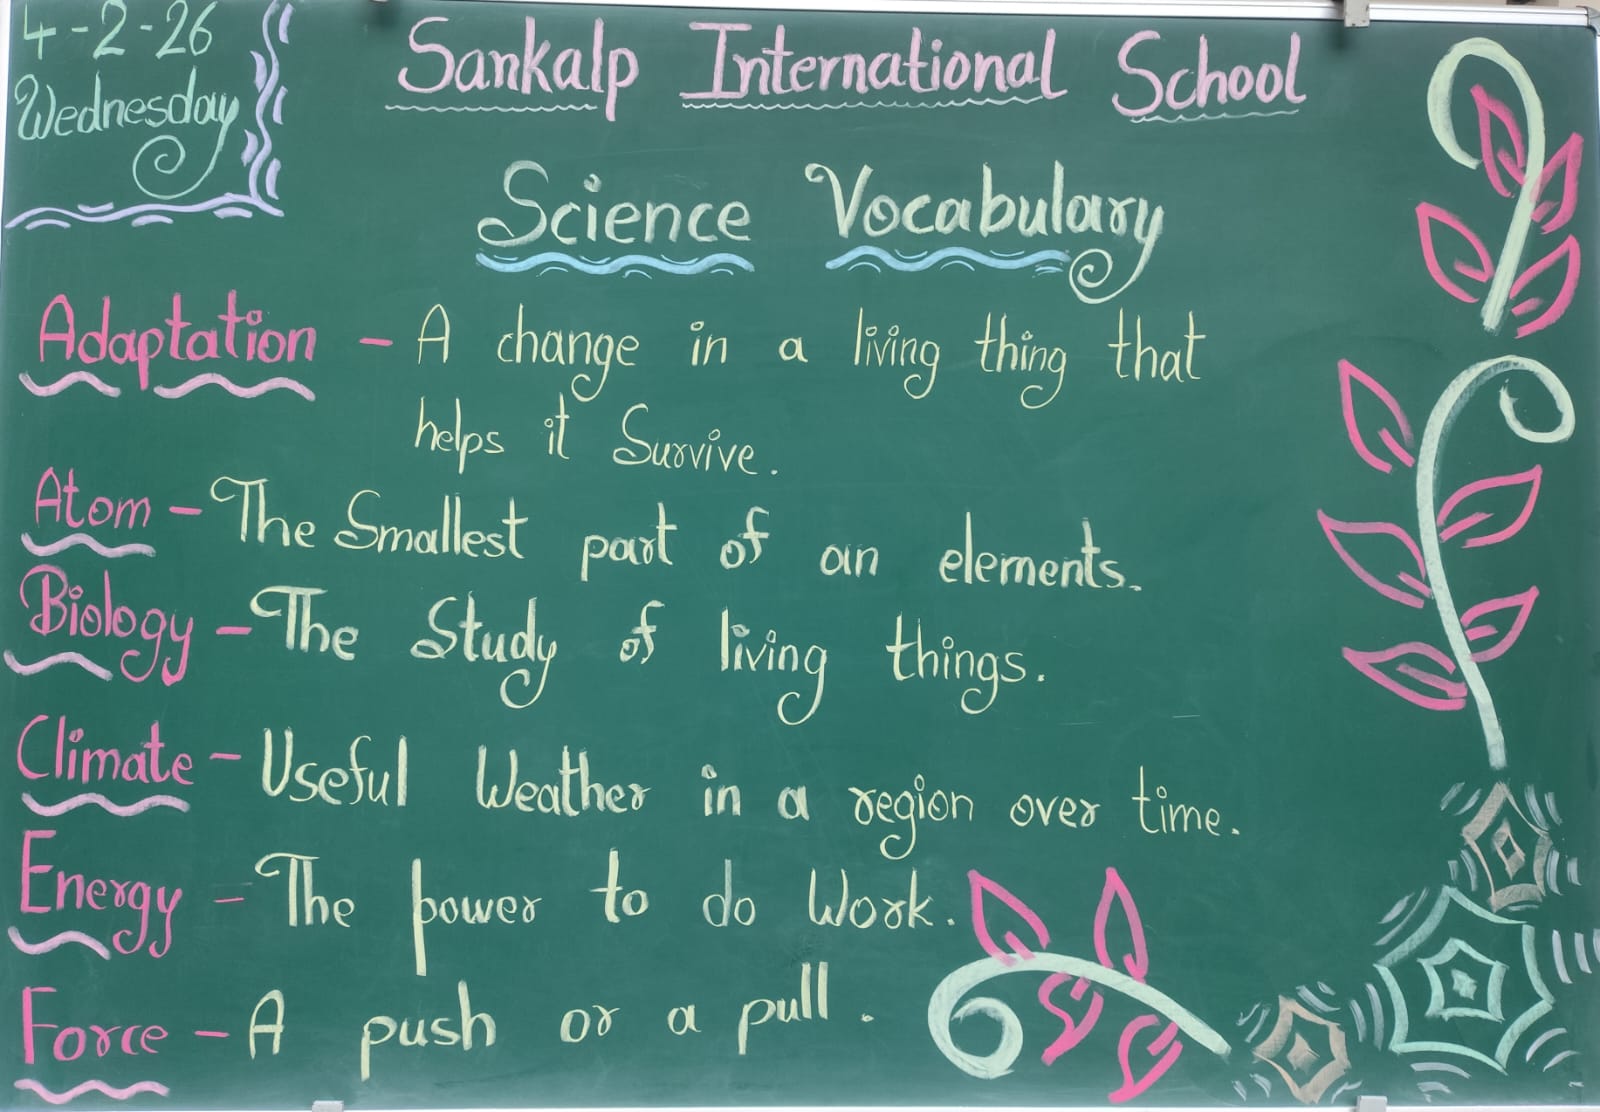 4-2-26
Wednesday
Sankalp International School
Science Vocabulary
Adaptation - A change in a living thing that
helps it Survive.
Atom - The Smallest part of an elements.
Biology - The Study of living things.
Climate - Useful Weather in a region over time.
Energy - The power to do Work.
Force - A push or a pull.